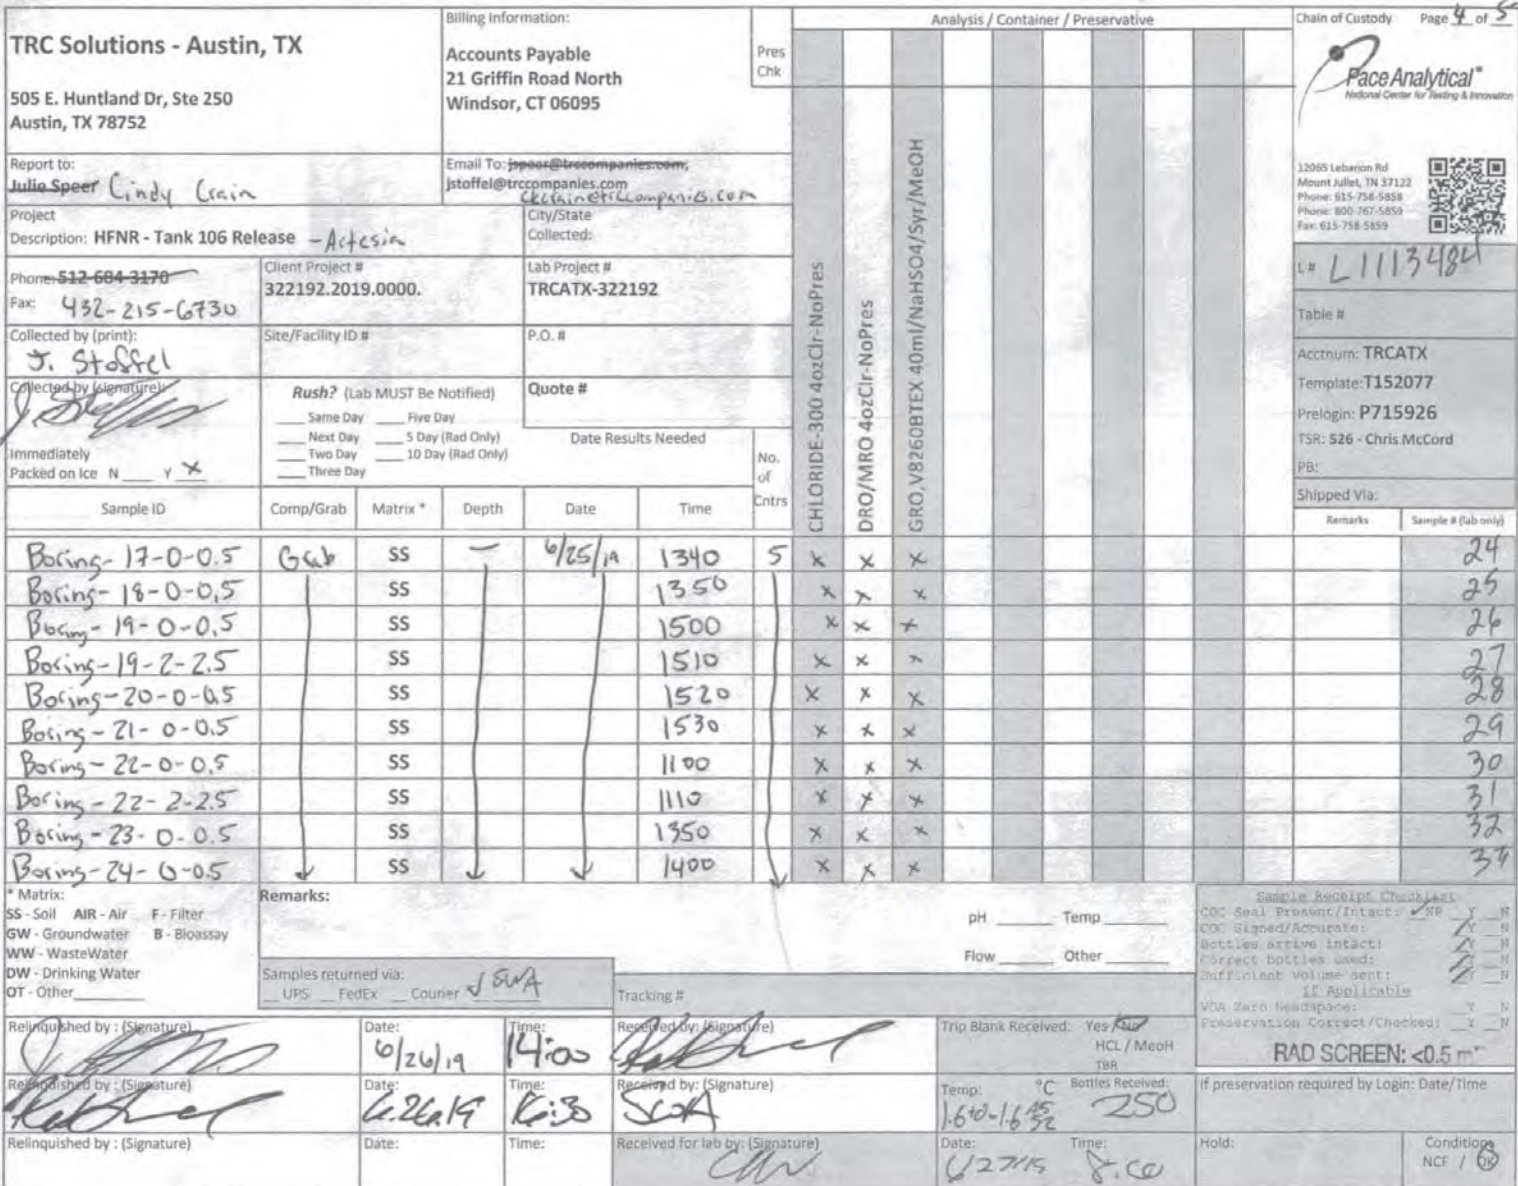 TRC Solutions - Austin, TX
505 E. Huntland Dr, Ste 250
Austin, TX 78752
Billing Information:
Accounts Payable
21 Griffin Road North
Windsor, CT 06095
Pres
Chk
Analysis / Container / Preservative
Chain of Custody Page 4 of 5
Pace Analytical®
National Center for Testing & Innovation
12065 Lebanon Rd
Mount Juliet, TN 37122
Phone: 615-758-5858
Phone: 800-767-5859
Fax: 615-758-5859
Report to:
Julie Speer Cindy Crain
Email To: jspeer@trccompanies.com,
jstoffel@trccompanies.com
ckcrain@trccompanies.com
Project
Description: HFNR - Tank 106 Release - Artesia
City/State
Collected:
Phone: 512-684-3170
Fax: 432-215-6730
Client Project #
322192.2019.0000.
Lab Project #
TRCATX-322192
L# L1113484
Table #
Acctnum: TRCATX
Template: T152077
Prelogin: P715926
TSR: 526 - Chris McCord
PB:
Shipped Via:
Collected by (print):
J. Stoffel
Site/Facility ID #
P.O. #
Collected by (signature):
Rush? (Lab MUST Be Notified)
Same Day Five Day
Next Day 5 Day (Rad Only)
Two Day 10 Day (Rad Only)
Three Day
Quote #
Date Results Needed
Immediately
Packed on Ice N Y X
No.
of
Cntrs
CHLORIDE-300 4ozClr-NoPres
DRO/MRO 4ozClr-NoPres
GRO,V8260BTEX 40ml/NaHSO4/Syr/MeOH
Sample ID Comp/Grab Matrix * Depth Date Time Remarks Sample # (lab only)
Boring-17-0-0.5 Grab SS - 6/25/19 1340 5 x x x 24
Boring-18-0-0.5 SS 1350 x x x 25
Boring-19-0-0.5 SS 1500 x x x 26
Boring-19-2-2.5 SS 1510 x x x 27
Boring-20-0-0.5 SS 1520 x x x 28
Boring-21-0-0.5 SS 1530 x x x 29
Boring-22-0-0.5 SS 1100 x x x 30
Boring-22-2-2.5 SS 1110 x x x 31
Boring-23-0-0.5 SS 1350 x x x 32
Boring-24-0-0.5 SS 1400 x x x
* Matrix:
SS - Soil AIR - Air F - Filter
GW - Groundwater B - Bioassay
WW - WasteWater
DW - Drinking Water
OT - Other
Remarks:
pH Temp
Flow Other
Samples returned via:
UPS FedEx Courier ✓ SWA
Tracking #
Sample Receipt Checklist
COC Seal Present/Intact: ✓ NP Y N
COC Signed/Accurate: Y N
Bottles arrive intact: Y N
Correct bottles used: Y N
Sufficient volume sent: Y N
If Applicable
VOA Zero Headspace: Y N
Preservation Correct/Checked: Y N
RAD SCREEN: <0.5 m
Relinquished by : (Signature)
Date:
6/26/19
Time:
14:00
Received by: (Signature)
Trip Blank Received: Yes / No
HCL / MeoH
TBR
Relinquished by : (Signature)
Date:
6.26.19
Time:
16:30
Received by: (Signature)
Temp: °C
Bottles Received:
250
If preservation required by Login: Date/Time
Relinquished by : (Signature)
Date:
Time:
Received for lab by: (Signature)
Date:
6/27/19
Time:
Hold:
Condition:
NCF / OK